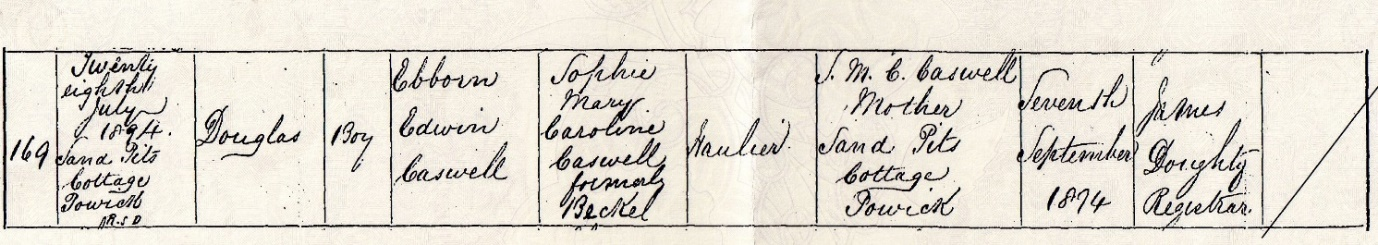 169
Twenty
eighth
July
1894.
Sand Pits
Cottage
Powick
R.S.D
Douglas
Boy
Ebborn
Edwin
Caswell
Sophie
Mary
Caroline
Caswell
formerly
Beckel
Haulier.
S. M. C. Caswell
Mother
Sand Pits
Cottage
Powick
Seventh
September
1894
James
Doughty
Registrar.